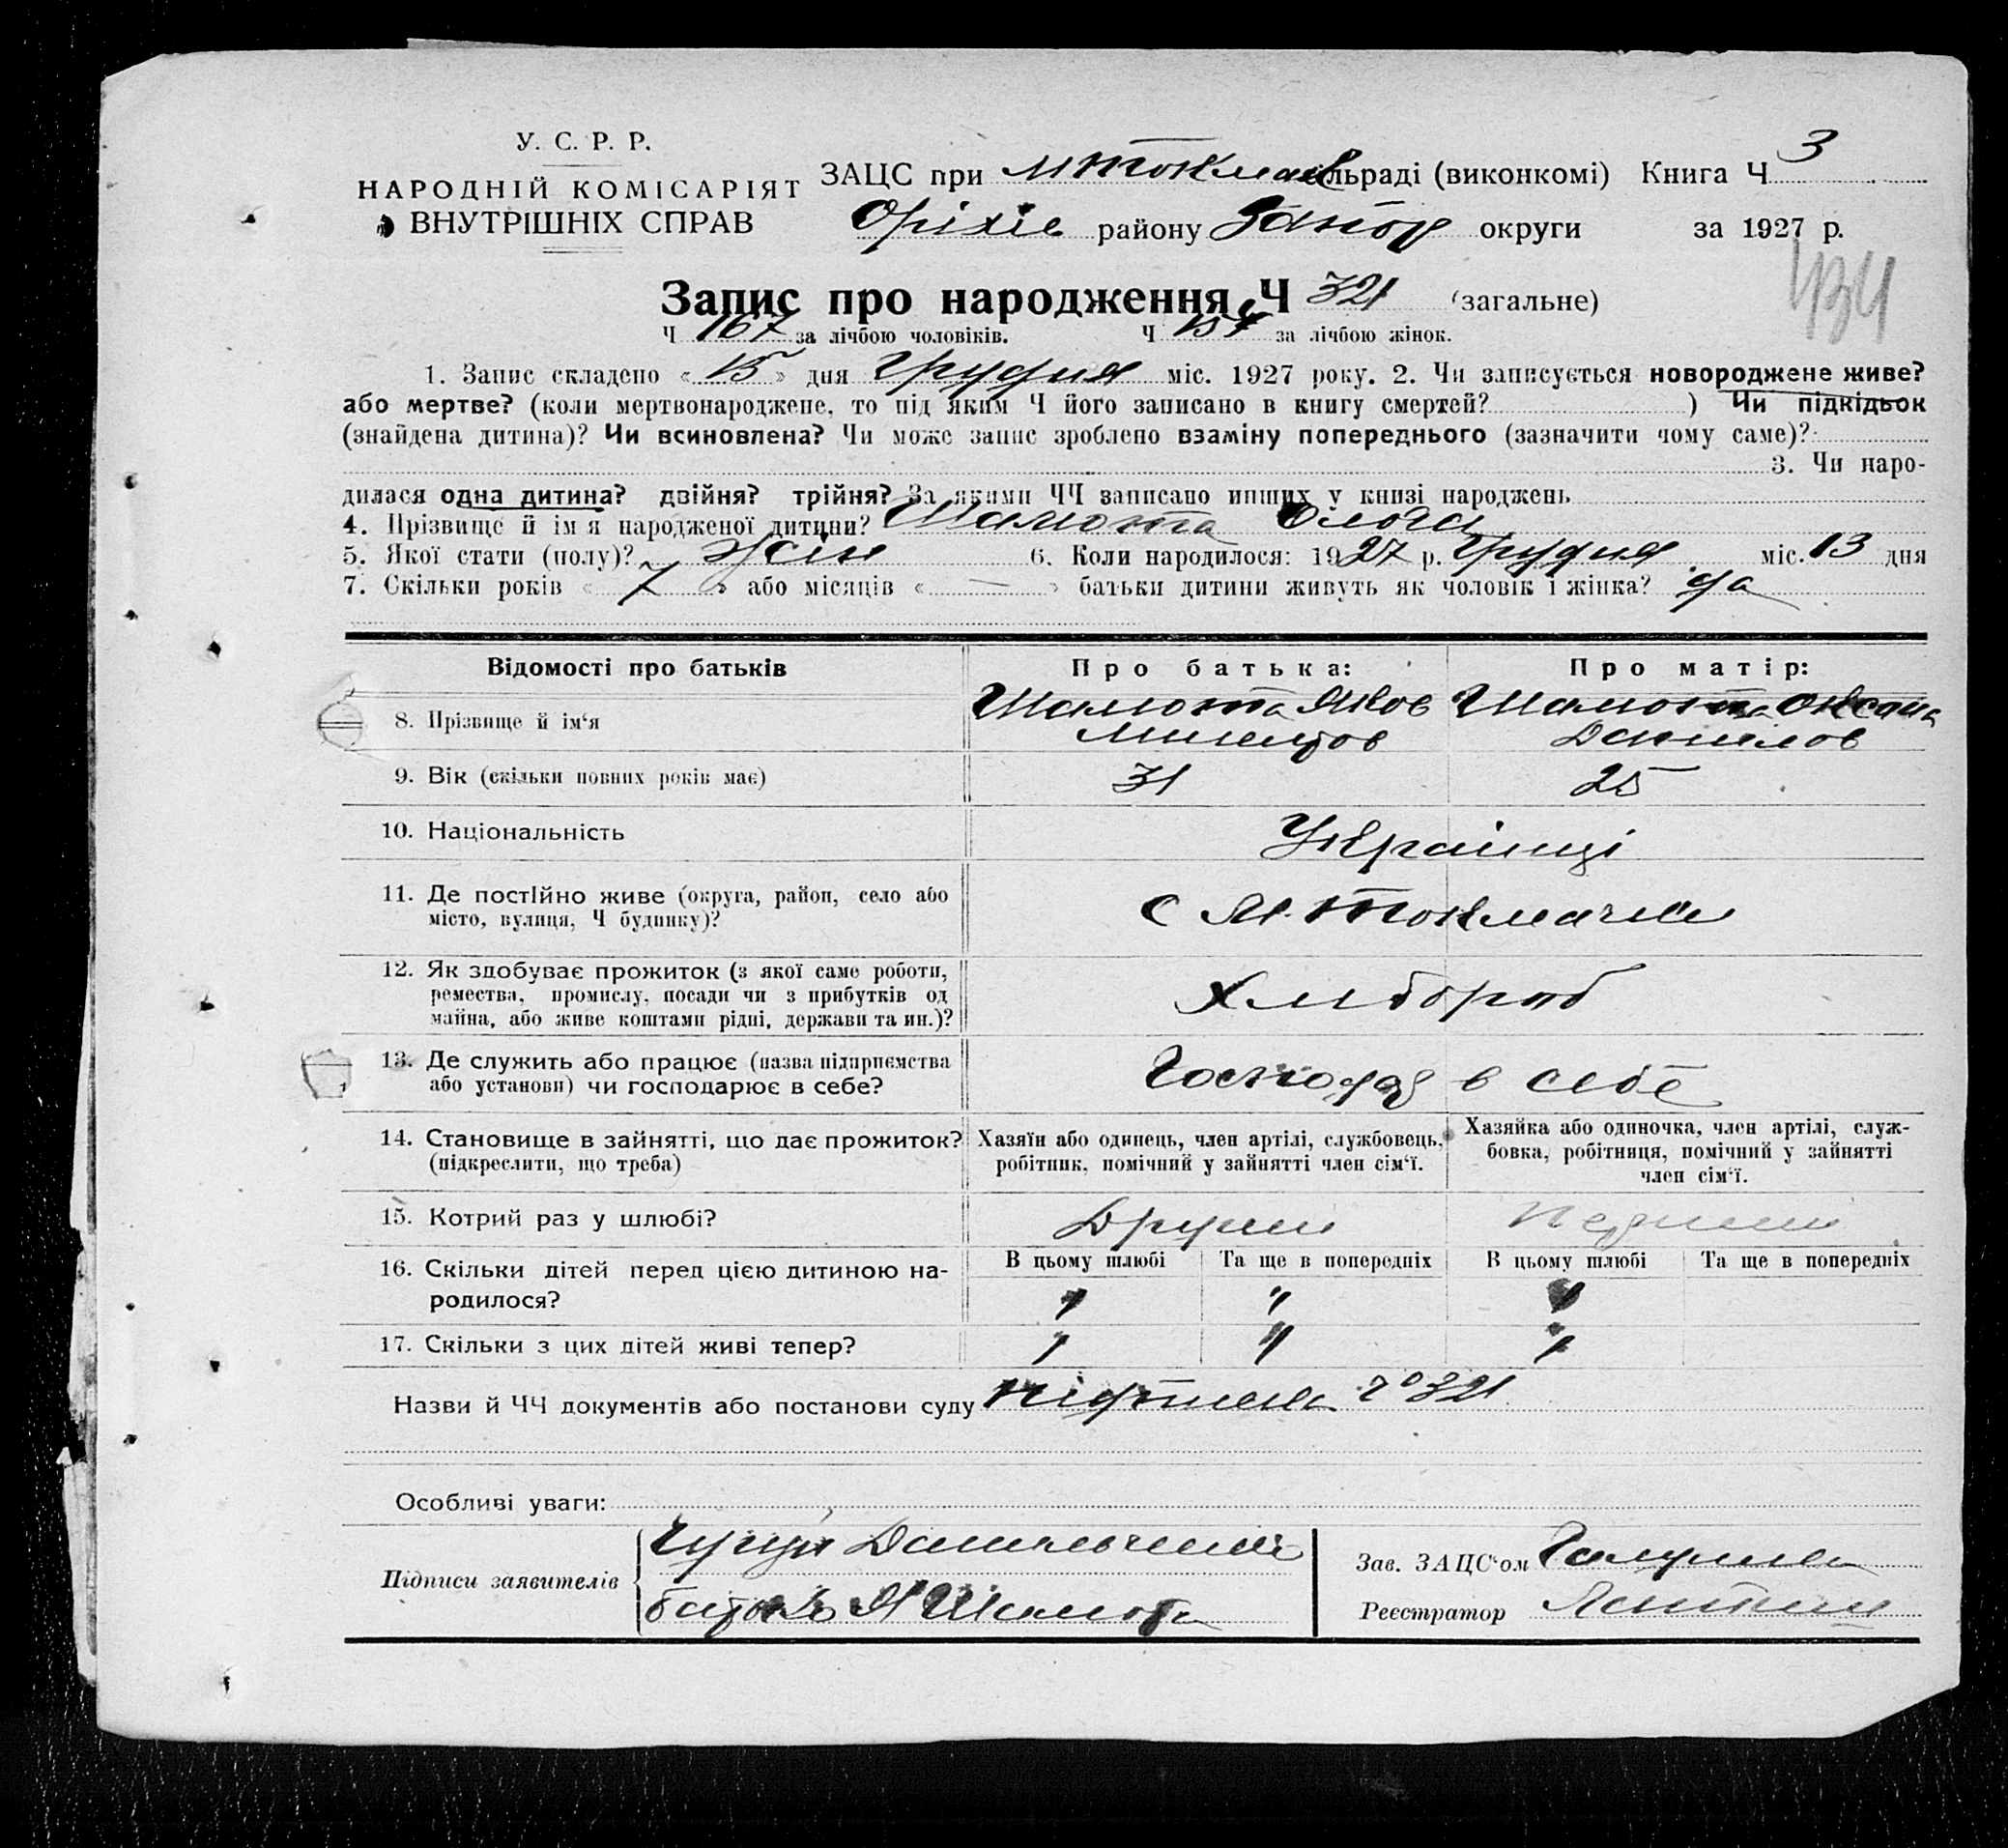 У. С. Р. Р.
НАРОДНІЙ КОМІСАРІЯТ
ВНУТРІШНІХ СПРАВ
ЗАЦС при МТокмач сільраді (виконкомі) Книга Ч 3
Оріхів району Запор округи за 1927 р.
434
Запис про народження Ч 321 (загальне)
Ч 167 за лічбою чоловіків. Ч 157 за лічбою жінок.
1. Запис складено « 15 » дня Грудня міс. 1927 року. 2. Чи записується новороджене живе?
або мертве? (коли мертвонароджене, то під яким Ч його записано в книгу смертей? ) Чи підкідьок
(знайдена дитина)? Чи всиновлена? Чи може запис зроблено взаміну попереднього (зазначити чому саме)?
3. Чи наро-
дилася одна дитина? двійня? трійня? За якими ЧЧ записано инших у книзі народжень
4. Прізвище й ім'я народженої дитини? Шамота Ольга
5. Якої стати (полу)? жін 6. Коли народилося: 1927 р. Грудня міс. 13 дня
7. Скільки років « 7 » або місяців « — » батьки дитини живуть як чоловік і жінка? да
Відомості про батьків Про батька: Про матір:
8. Прізвище й ім'я Шамота Яков Шамота Оксана
Данилов
9. Вік (скільки повних років має) 31 25
10. Національність Українці
11. Де постійно живе (округа, район, село або
місто, вулиця, Ч будинку)? с М. Токмачки
12. Як здобуває прожиток (з якої саме роботи,
ремества, промислу, посади чи з прибутків од
майна, або живе коштами рідні, держави та ин.)? Хлібороб
13. Де служить або працює (назва підприємства
або установи) чи господарює в себе? Господар в себе
14. Становище в зайнятті, що дає прожиток?
(підкреслити, що треба)
Хазяїн або одинець, член артілі, службовець,
робітник, помічний у зайнятті член сім'ї.
Хазяйка або одиночка, член артілі, служ-
бовка, робітниця, помічний у зайнятті
член сім'ї.
15. Котрий раз у шлюбі? Други
16. Скільки дітей перед цією дитиною на-
родилося?
В цьому шлюбі Та ще в попередніх В цьому шлюбі Та ще в попередніх
17. Скільки з цих дітей живі тепер?
Назви й ЧЧ документів або постанови суду № 321
Особливі уваги:
Підписи заявителів
батько Я Шамота
Зав. ЗАЦС'ом
Реєстратор